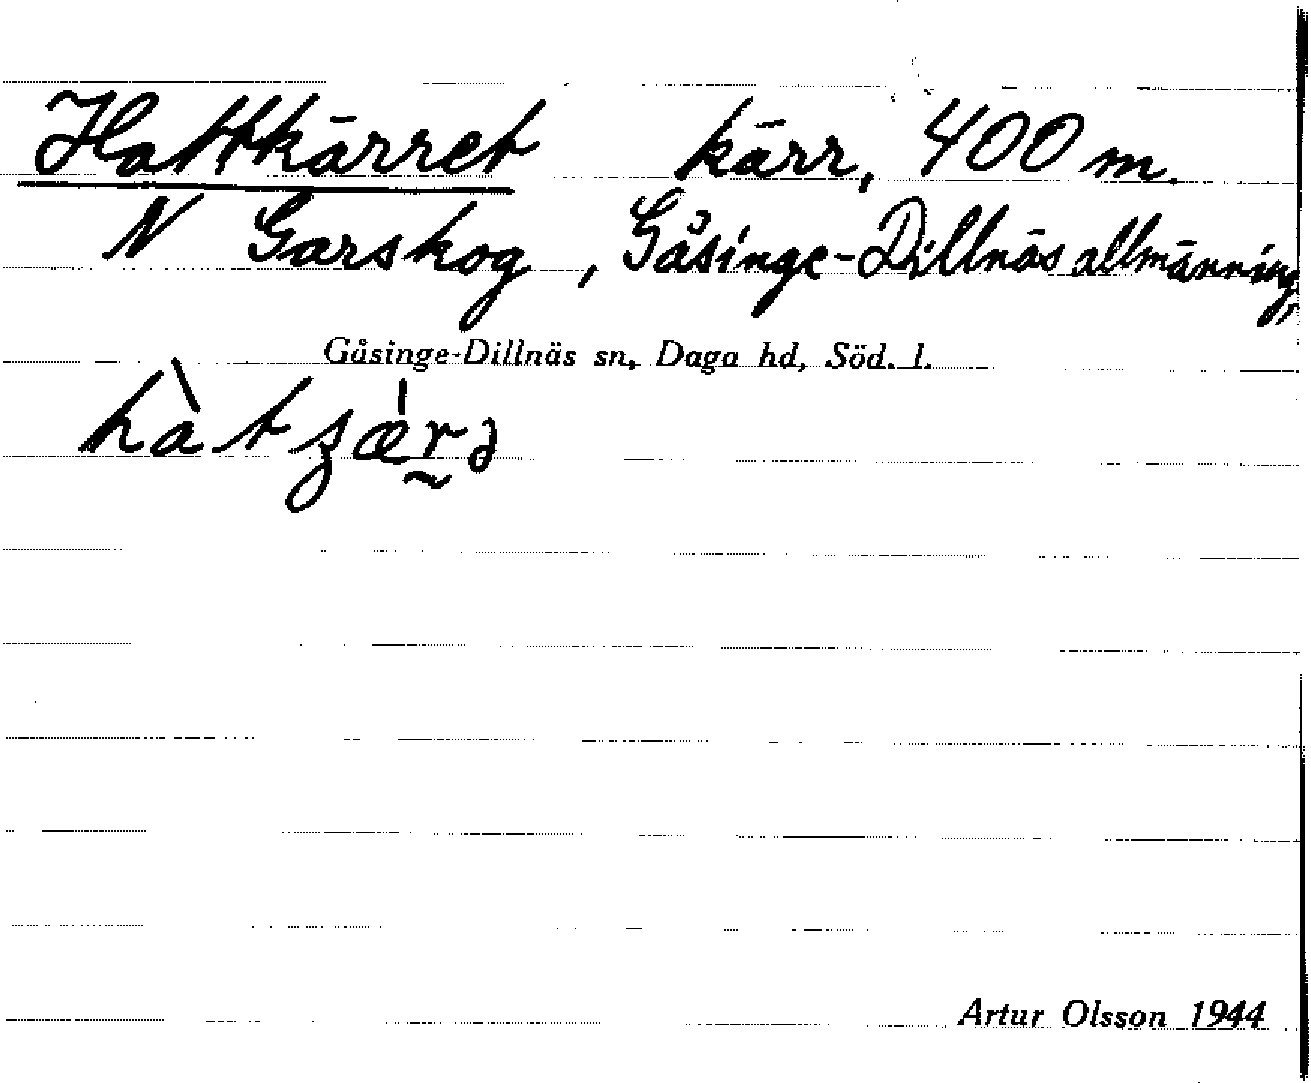 Hattkärret kärr, 400 m.
N Garskog, Gåsinge-Dillnäs allmänning,
Gåsinge-Dillnäs sn, Daga hd, Söd. l.
Artur Olsson 1944